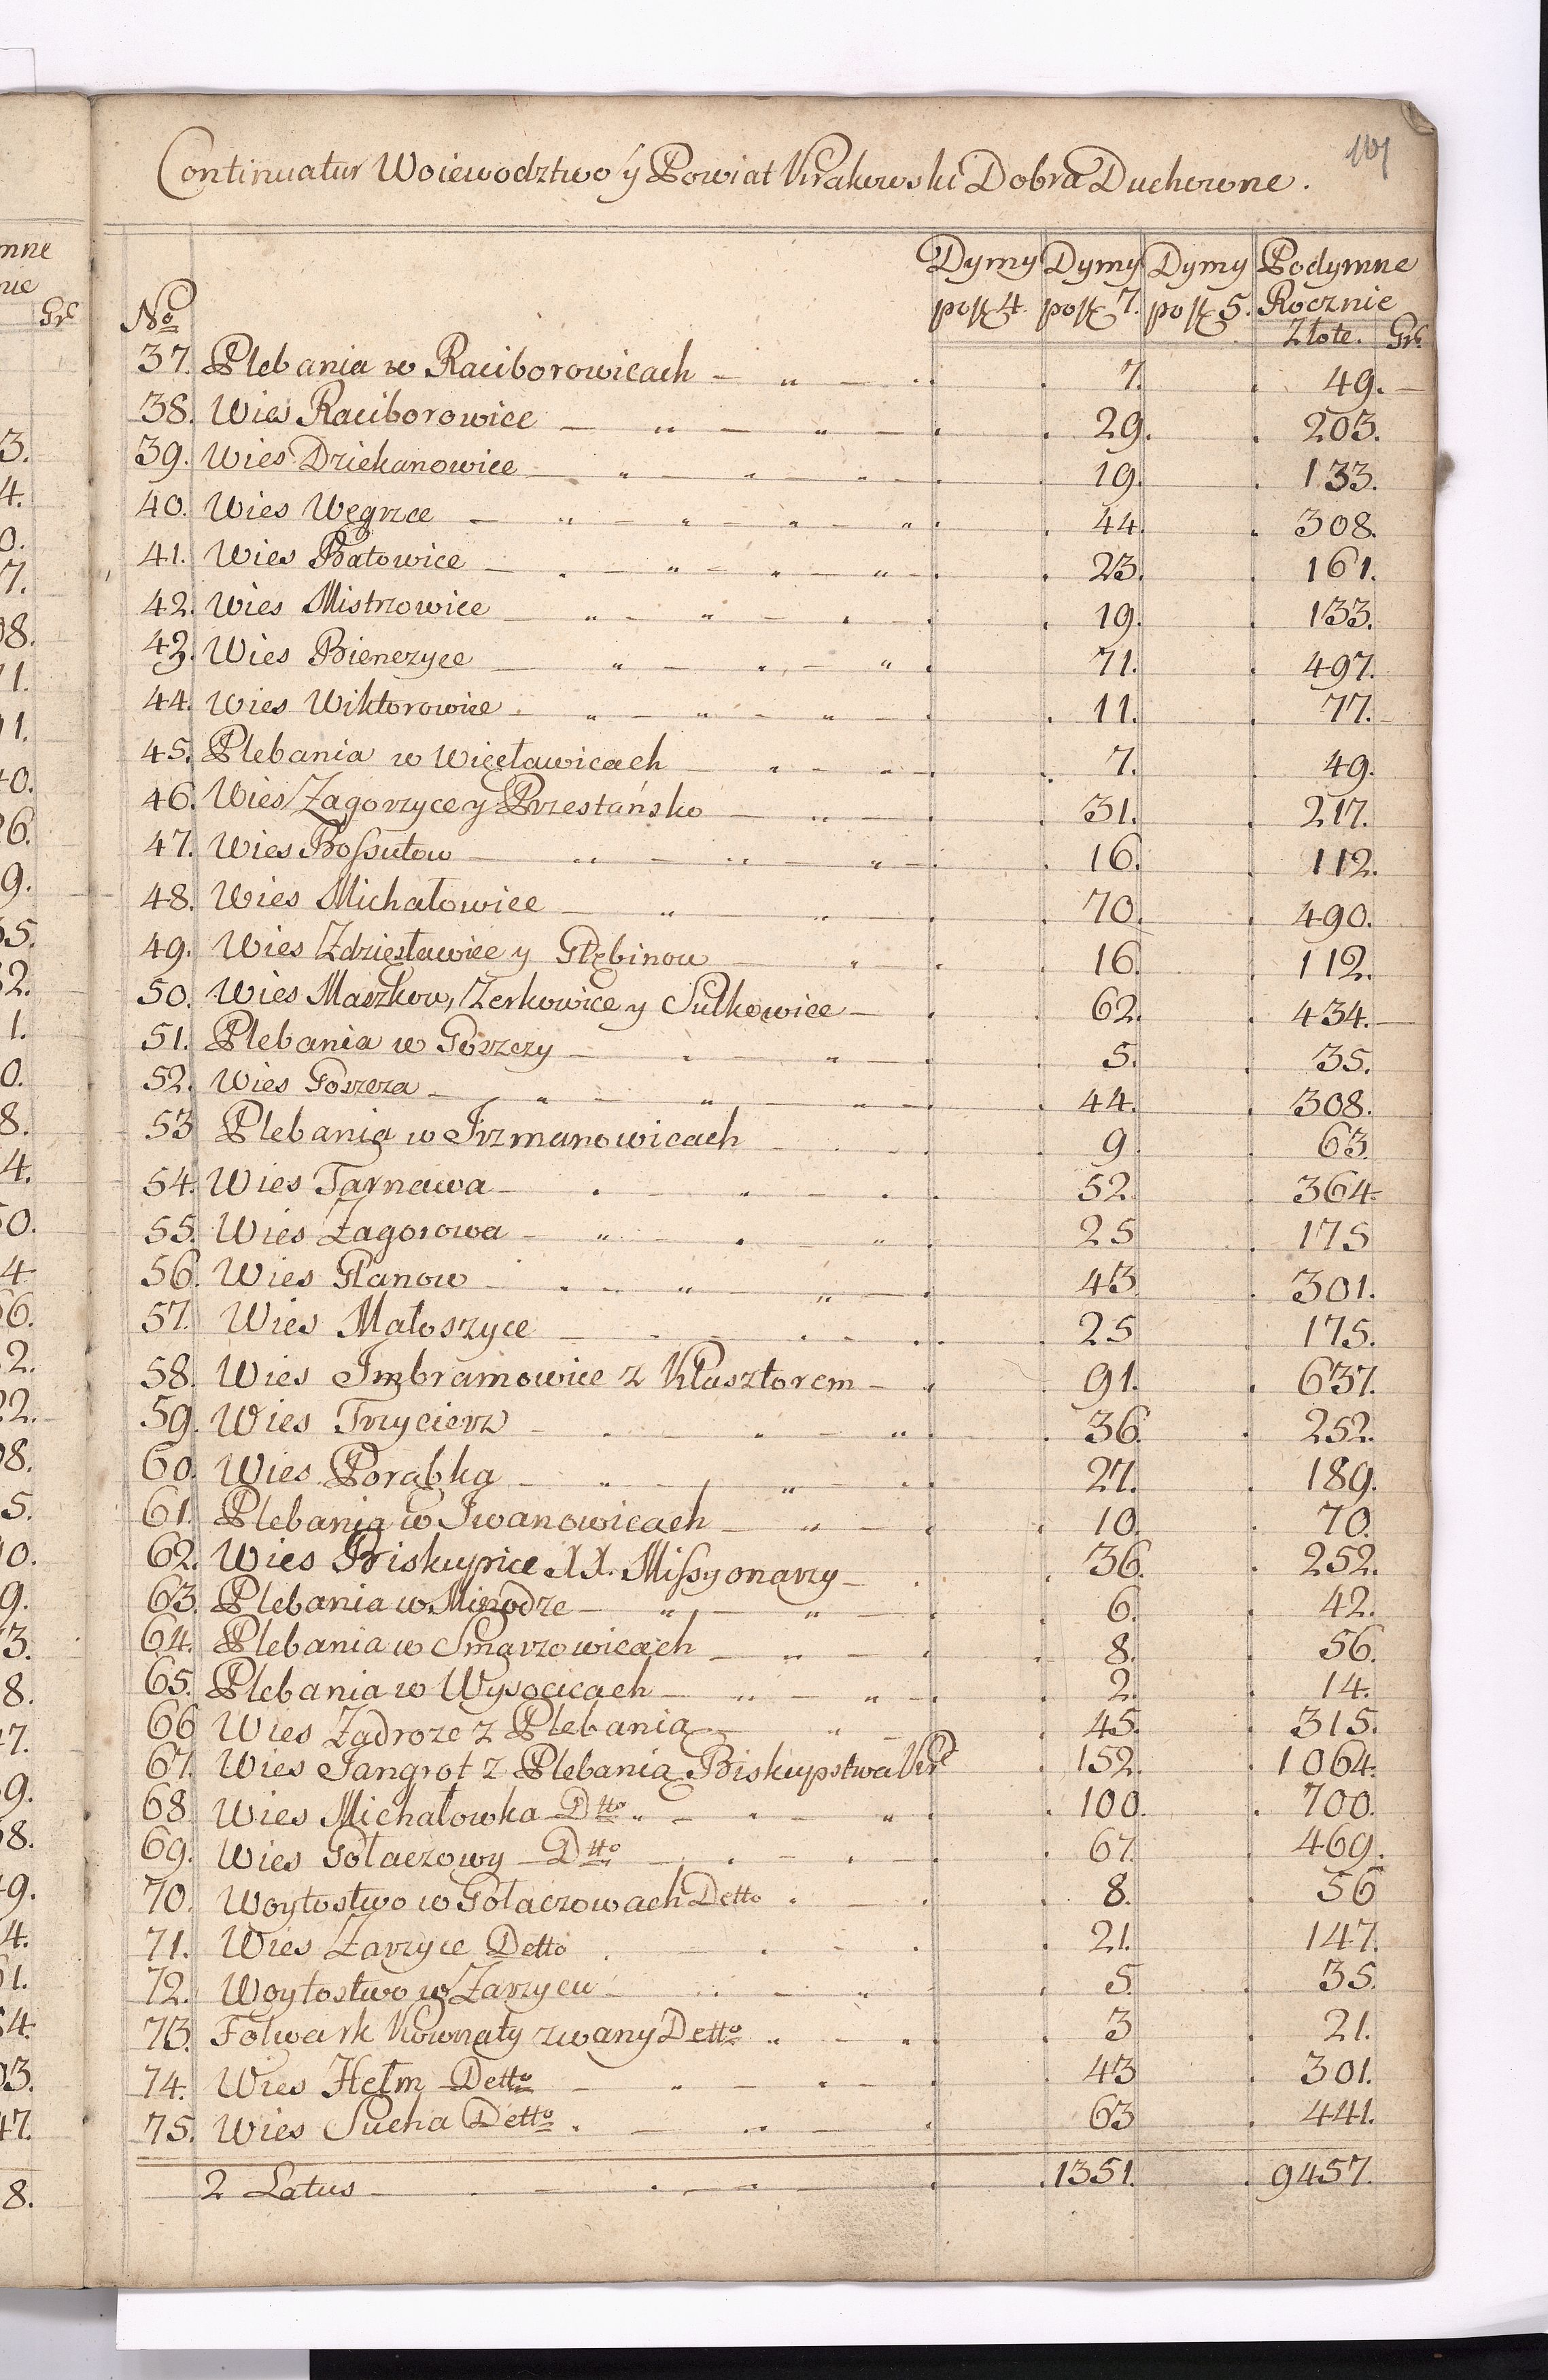 107
Continuatur Woiewodztwo y Powiat Krakowski Dobra Duchowne.
No Dymy po zł 4. Dymy po zł 7. Dymy po zł 5. Podymne Rocznie
Złote. Gr.
37. Plebania w Raciborowicach 7. 49.
38. Wies Raciborowice 29. 203.
39. Wies Dziekanowice 19. 133.
40. Wies Węgrzce 44. 308.
41. Wies Batowice 23. 161.
42. Wies Mistrzowice 19. 133.
43. Wies Bienczyce 71. 497.
44. Wies Wiktorowice 11. 77.
45. Plebania w Więcławicach 7. 49.
46. Wies Zagorzyce y Przestańsko 31. 217.
47. Wies Bossutow 16. 112.
48. Wies Michałowice 70. 490.
49. Wies Zdzięsławice y Głębinow 16. 112.
50. Wies Maszkow, Zerkowice y Sułkowice 62. 434.
51. Plebania w Gorzczy 5. 35.
52. Wies Goszcza 44. 308.
53 Plebania w Jrzmanowicach 9. 63
54. Wies Tarnawa 52. 364.
55. Wies Zagorowa 25 175
56. Wies Glanow 43 301.
57. Wies Małoszyce 25 175.
58. Wies Jmbramowice z Klasztorem 91. 637.
59. Wies Trzycierz 36. 252.
60. Wies Porąbka 27. 189.
61. Plebania w Jwanowicach 10. 70.
62. Wies Biskupice XX. Missyonarzy 36. 252.
63. Plebania w Minodze 6. 42.
64. Plebania w Smarzowicach 8. 56.
65. Plebania w Wysocicach 2. 14.
66 Wies Zadroze z Plebanią 45. 315.
67. Wies Jangrot z Plebanią Biskupstwa Kr 152. 1064.
68. Wies Michałowka Dtto 100. 700.
69. Wies Gołaczowy Dtto 67. 469.
70. Woytostwo w Gołaczowach Detto 8. 56
71. Wies Zarzyce Detto 21. 147.
72. Woytostwo w Zarzycu 5. 35.
73. Folwark Kownaty zwany Detto 3 21.
74. Wies Hełm Detto 43 301.
75. Wies Sucha Detto 63 441.
2 Latus 1351. 9457.